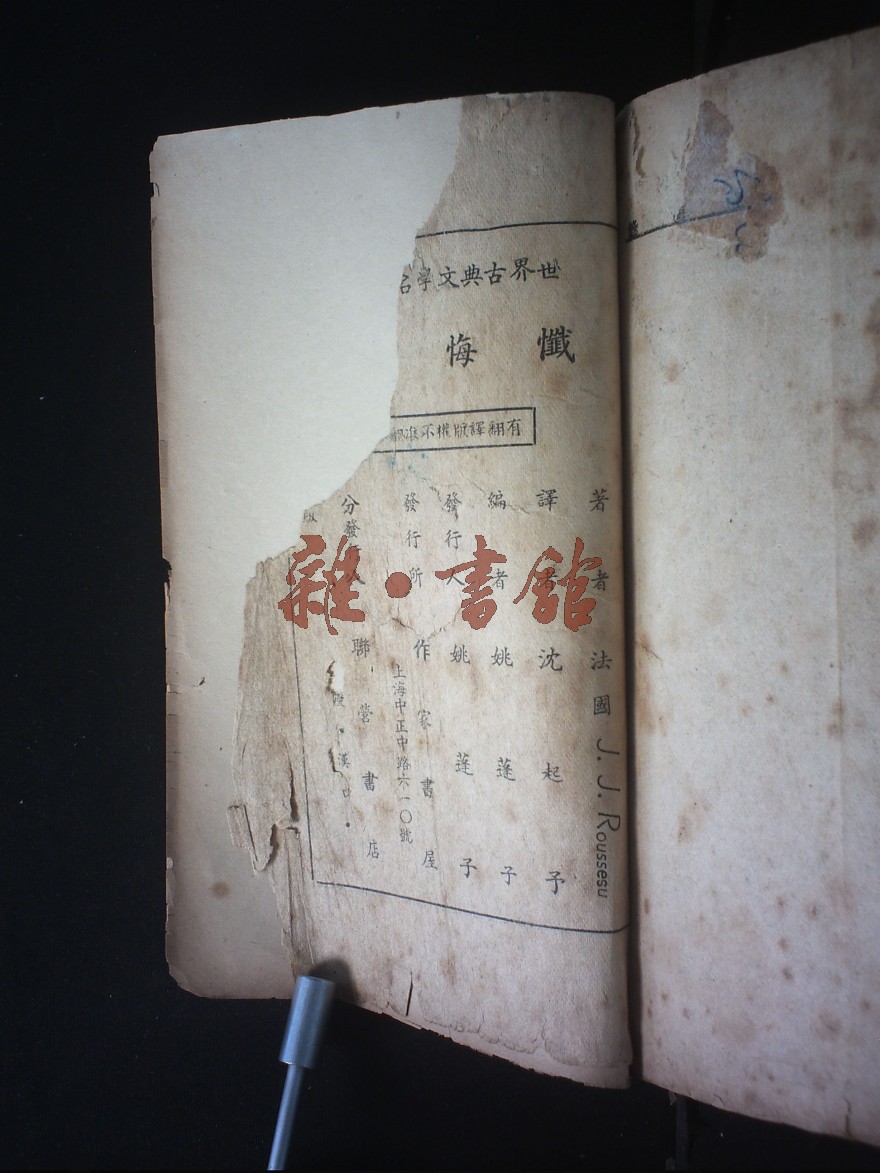 世界古典文學名
懺悔
有翻譯版權不准翻
著者 法國 J. J. Roussesu
譯者 沈起予
編者 姚蓬子
發行人 姚蓬子
發行所 作家書屋
上海中正中路六一〇號
分發行人 聯營書店
漢口
雜·書館